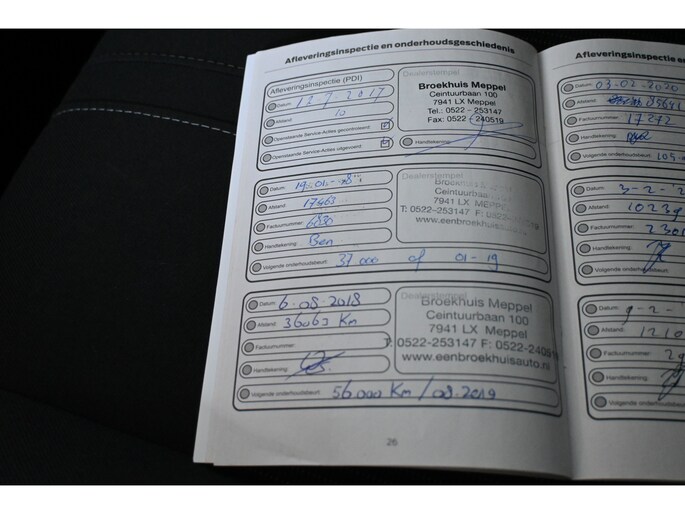 Afleveringsinspectie en onderhoudsgeschiedenis
Afleveringsinspectie (PDI)
Datum: 12 7 2017
Afstand: 10
Openstaande Service-Acties gecontroleerd:
Openstaande Service-Acties uitgevoerd:
Dealerstempel
Broekhuis Meppel
Ceintuurbaan 100
7941 LX Meppel
Tel.: 0522 - 253147
Fax: 0522 - 240519
Handtekening:
Datum: 19-01-18
Afstand: 17463
Factuurnummer:
Handtekening: Ben
Volgende onderhoudsbeurt: 37 000 of 01-19
Dealerstempel
Broekhuis
Ceintuurbaan
7941 LX MEPPEL
T: 0522-253147 F: 0522-
www.eenbroekhuis
Datum: 6-08-2018
Afstand: 36063 Km
Factuurnummer:
Handtekening:
Volgende onderhoudsbeurt: 56 000 Km / 08-2019
Dealerstempel
Broekhuis Meppel
Ceintuurbaan 100
7941 LX Meppel
T: 0522-253147 F: 0522-240519
www.eenbroekhuisauto.nl
26
Afleveringsinspectie en
Datum: 03-02-2020
Afstand:
Factuurnummer: 17292
Handtekening:
Volgende onderhoudsbeurt:
Datum: 3-2-2
Afstand: 1023
Factuurnummer: 2301
Handtekening:
Volgende onderhoudsbeurt:
Datum: 9-2-
Afstand: 1210
Factuurnummer:
Handtekening:
Volgende onderhoudsbeurt: